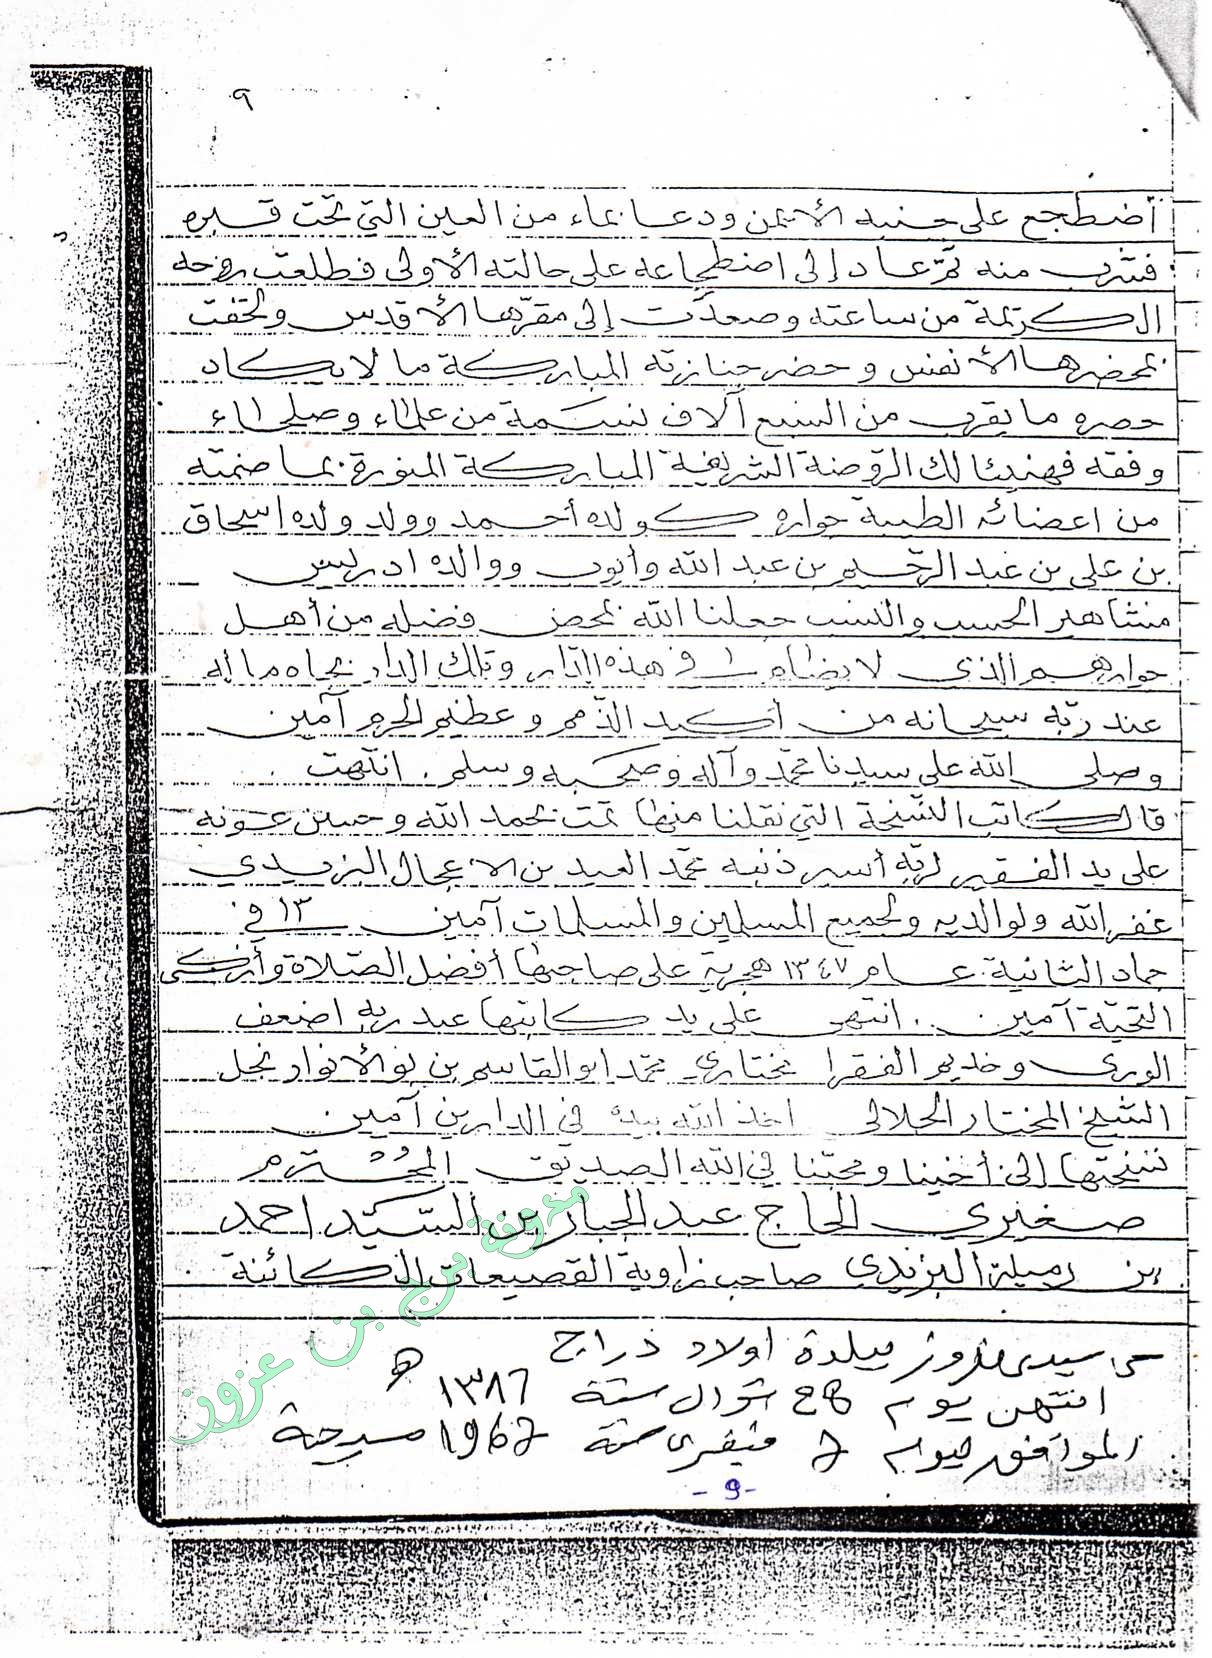 ٩
أضطجع على جنبه الأيمن ودعا بماء من العين التي تحت قبره
فشرب منه ثمّ عاد إلى اضطجاعه على حالته الأولى فطلعت روحه
الكريمة من ساعته وصعدت إلى مقرّها الأقدس ولحقت
بمحضرها الأنفس وحضر جنازته المباركة ما لا يكاد
حصره ما يقرب من السبع آلاف نسمة من علماء وصلحاء
وفقه فهنيئا لك الروضة الشريفة المباركة المنورة بما ضمته
من اعضائه الطيبة جواره كولده أحمد وولد ولده اسحاق
بن علي بن عبد الرحيم بن عبد الله وأيوب ووالده ادريس
مشاهير الحسب والنسب جعلنا الله بمحض فضله من أهل
جوارهم الذي لا يضام في هذه الدّار وتلك الدار بجاه ماله
عند ربّه سبحانه من أكيد الذّمم وعظيم الحرم آمين
وصلى الله على سيدنا محمّد وآله وصحبه وسلم. انتهت
قال كاتب النسّخة التي نقلنا منها تمت بحمد الله وحسن عونه
على يد الفقير لربّه أسير ذنبه محمّد العيد بن الاعجال البزيدي
غفر الله ولوالديه ولجميع المسلمين والمسلمات آمين ١٣ في
جماد الثانية عام ١٣٤٧ هجرية على صاحبها أفضل الصّلاة وأزكى
التحيّة آمين. انتهى على يد كاتبها عبد ربه اضعف
الورى وخديم الفقرا مختاري محمّد ابو القاسم بن نو الأنوار نجل
الشيخ المختار الجلالي اخذ الله بيده في الدارين آمين
نسختها إلى أخينا ومحبّنا في الله الصديق المحترم
صغيري الحاج عبد الجبار بن السيّد احمد
بن رميلة البزيدي صاحب زاوية القصيعات الكائنة
سيدي بلدة اولاد دراج
انتهى يوم شوال سنة ١٣٨٦ ه
الموافق ليوم فيفري سنة 1967
- 9 -
مدونة برج بن عزوز